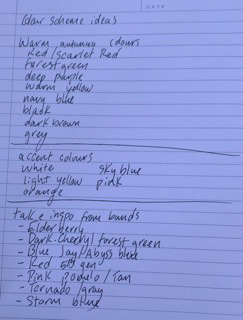 Colour scheme ideas
Warm autumn colours
Red/Scarlet Red
forest green
deep purple
warm yellow
navy blue
black
dark brown
grey
accent colours
white sky blue
light yellow pink
orange
take inspo from bands
- Elderberry
- Dark Cherry/forest green
- Blue Jay/Abyss blue
- Red 5th gen
- Pink Pomelo/Tan
- Tornado/gray
- Storm blue